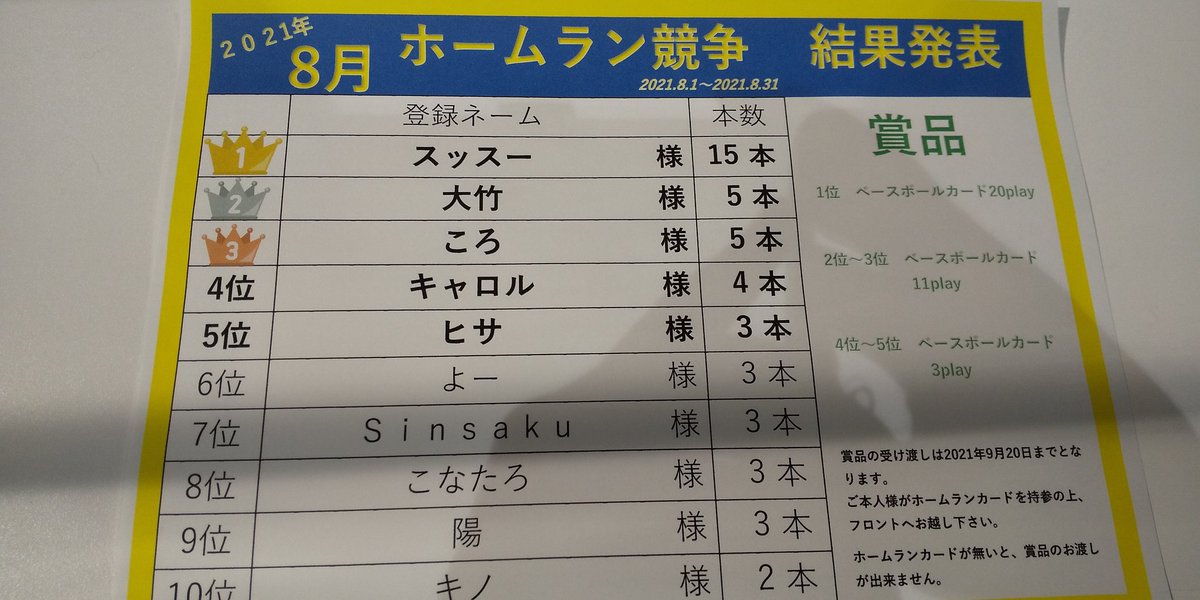 2021年
8月 ホームラン競争 結果発表
2021.8.1～2021.8.31
登録ネーム 本数
1 スッスー 様 15 本
2 大竹 様 5 本
3 ころ 様 5 本
4位 キャロル 様 4 本
5位 ヒサ 様 3 本
6位 よー 様 3 本
7位 Ｓｉｎｓａｋｕ 様 3 本
8位 こなたろ 様 3 本
9位 陽 様 3 本
10位 キノ 様 2 本
賞品
1位 ベースボールカード20play
2位～3位 ベースボールカード
11play
4位～5位 ベースボールカード
3play
賞品の受け渡しは2021年9月20日までとな
ります。
ご本人様がホームランカードを持参の上、
フロントへお越し下さい。
ホームランカードが無いと、賞品のお渡し
が出来ません。